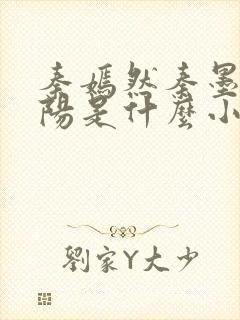 秦嫣然秦墨
陽是什麼小
劉家Y大少